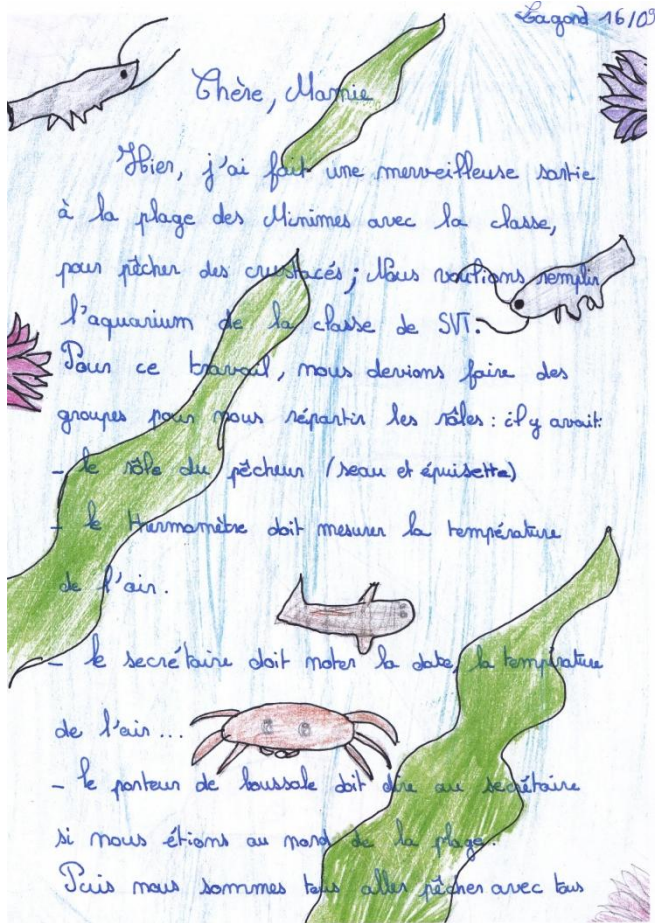 Lagord 16/09
Chère, Mamie
Hier, j'ai fait une merveilleuse sortie
à la plage des Minimes avec la classe,
pour pêcher des crustacés ; Nous voulions remplir
l'aquarium de la classe de SVT.
Pour ce travail, nous devions faire des
groupes pour nous répartir les rôles : il y avait:
- le rôle du pêcheur (seau et épuisette)
- le thermomètre doit mesurer la température
de l'air.
- le secrétaire doit noter la date, la température
de l'air ...
- le porteur de boussole doit dire au secrétaire
si nous étions au nord de la plage.
Puis nous sommes tous aller pêcher avec tous